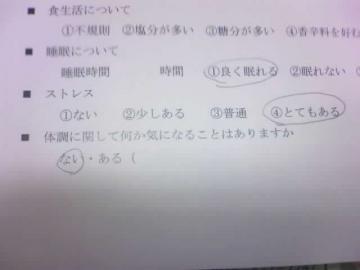 ■ 食生活について
①不規則 ②塩分が多い ③糖分が多い ④香辛料を好む
■ 睡眠について
睡眠時間 時間 ①良く眠れる ②眠れない
■ ストレス
①ない ②少しある ③普通 ④とてもある
■ 体調に関して何か気になることはありますか
ない・ある（